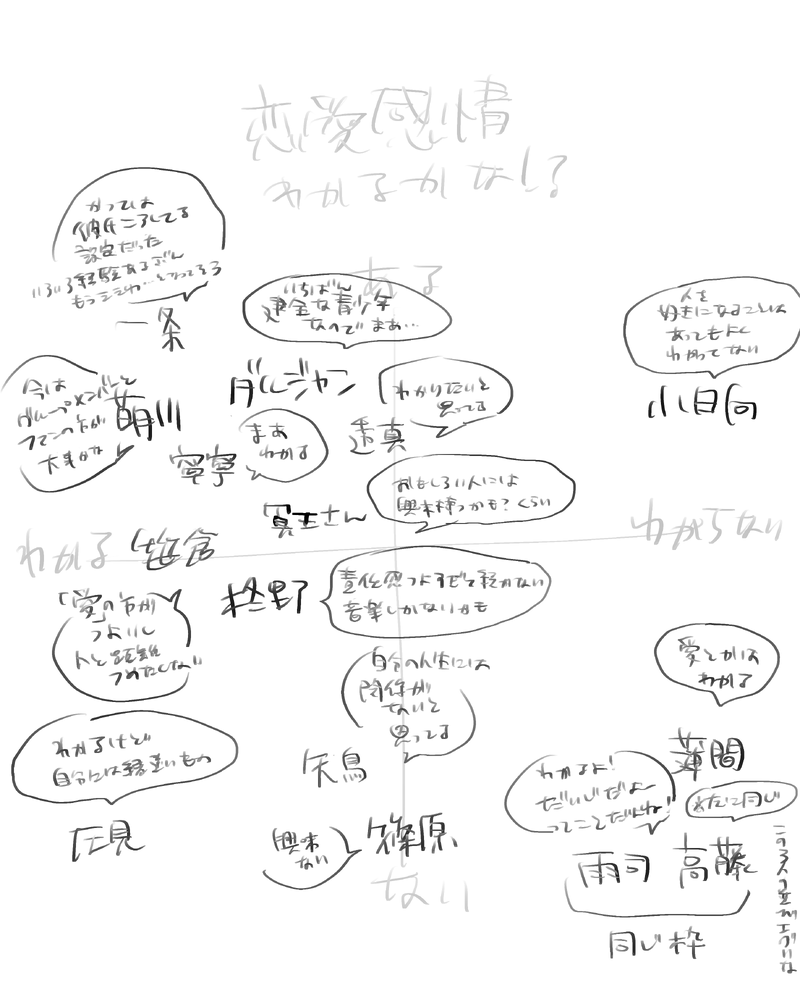 恋愛感情
わかるかなし!?
ある
かつては
彼氏ころしてる
設定だった
いろいろ経験あるぶん
一条
いちばん
健全な青少年
なんでまあ…
人を
好きになることは
あってもよく
わかってない
小日向
今は
グループメンバーと
ファンの方が
大事かな
萌川
ダルジャン
わかりたいと
思ってる
透真
まあ
わかる
寧寧
おもしろい人には
興味持つかも?くらい
冥王さん
わかる
笹倉
わからない
「愛」の方が
つよいし
人と距離
つめたくない
柊野
責任感つよすぎて軽かない
音楽しかないかも
自分の人生には
関係が
ないと
思ってる
矢鳥
愛とかは
わかる
蓮間
わかるけど
自分には縁遠いもの
圧見
興味
ない
篠原
わかるよ!
だいじだよー
ってことだよね!
雨司
同じ
高藤
同じ枠
ない